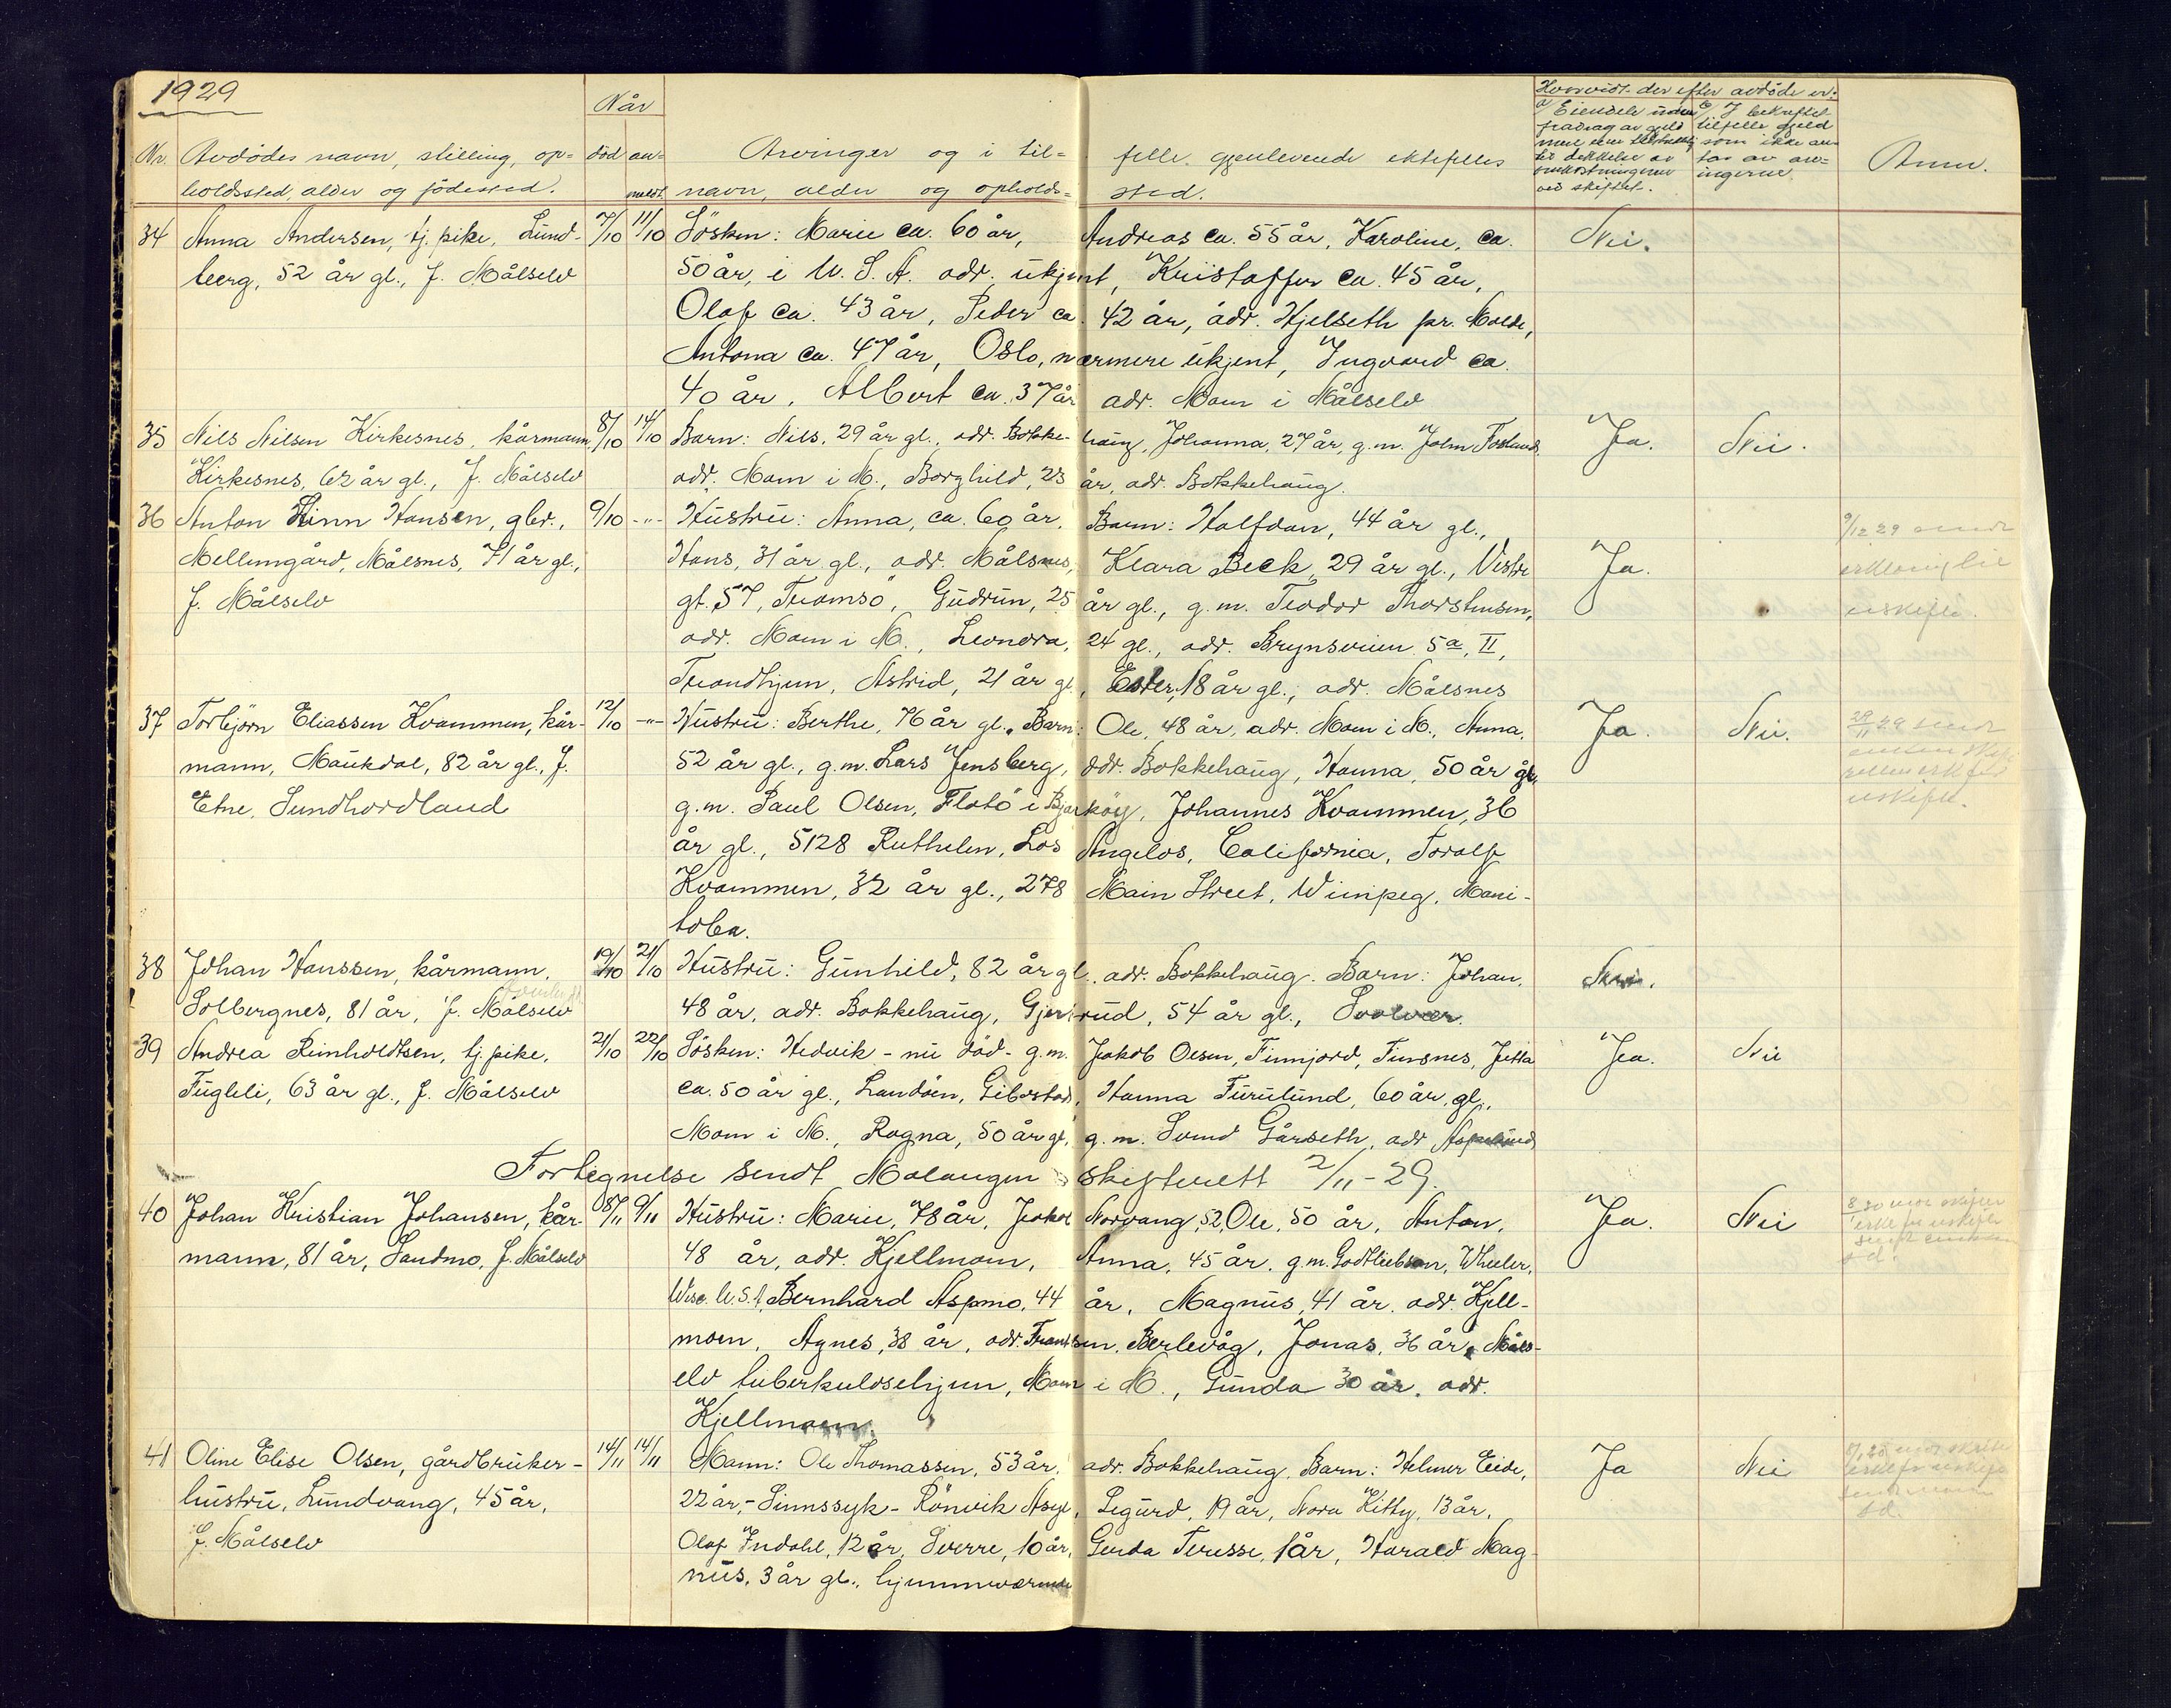 1929
Når
Hvorvidt der efter avdöde er:
Nr. Avdödes navn, stilling, op- död an- Arvinger og i til- felle gjenlevende ektefelles
a/ Eiendele uten b/ I bekreftet
fradrag av gjeld tilfelle gjeld
mere enn som ikke
til dekkelse av tas av arv-
omkostningene ingerne.
ved skiftet.
Anm.
holdssted, alder og födested. meldt navn, alder og opholds- sted.
34 Anna Andersen, tj. pike, Lund- 7/10 11/10 Sösken: Marie ca. 60 år, Andreas ca. 55 år, Karoline, ca. Nei.
berg, 52 år gl., f. Målselv 50 år, i U. S. A. adr. ukjent, Kristoffer ca. 45 år,
Olaf ca. 43 år, Peder ca. 42 år, adr. Hjelseth pr. Molde,
Antona ca. 47 år, Oslo, nærmere ukjent, Ingvard ca.
40 år, Albert ca. 37 år adr. Moen i Målselv
35 Nils Nilsen Kirkesnes, kårmann, 8/10 14/10 Barn: Nils, 29 år gl., adr. Bokke- haug, Johanna, 27 år, g.m. John Fosland, Ja. Nei.
Kirkesnes, 62 år gl., f. Målselv adr. Moen i M., Borghild, 23 år, adr. Bokkehaug.
36 Anton Hinn Hansen, gbr., 9/10 -"- Hustru: Anna, ca. 60 år, Barn: Halfdan, 44 år gl., 9/12 29 sendt
Mellemgård, Målsnes, 71 år gl., Hans, 31 år gl., adr. Målsnes, Klara Beck, 29 år gl., Vestre Ja.
f. Målselv gt. 57, Tromsö, Gudrun, 25 år gl., g.m. Teodor Thorstensen, uskifte.
adr. Moen i M., Leonora, 24 gl., adr. Brynsveien 5a, II,
Trondhjem, Astrid, 21 år gl., Ester, 18 år gl., adr. Målsnes
37 Torbjörn Eliassen Kvammen, kår- 12/10 -"- Hustru: Berthe, 76 år gl. Barn: Ole, 48 år, adr. Moen i M., Anna, Ja. Nei. 29 sendt
mann, Maukdal, 82 år gl., f. 52 år gl., g.m. Lars Jensberg, adr. Bokkehaug, Hanna, 50 år gl.
Etne, Sundhordland g.m. Paul Olsen, Flatö i Bjarköy, Johannes Kvammen, 36 uskifte.
år gl., 5128 Ruthelen, Los Angelos, California, Torolf
Kvammen, 32 år gl., 278 Main Street, Winnipeg, Mani-
toba.
38 Johan Hanssen, kårmann, 19/10 21/10 Hustru: Gunhild, 82 år gl. adr. Bokkehaug. Barn: Johan, Nei.
Solbergnes, 81 år, f. Målselv 48 år, adr. Bokkehaug, Gjertrud, 54 år gl., Svolvær.
39 Andrea Reinholdtsen, tj. pike, 21/10 22/10 Sösken: Hedvik - nu död - g.m. Jakob Olsen, Finnjord, Finsnes, Jetta Ja. Nei
Fugleli, 63 år gl., f. Målselv ca. 50 år gl., Landöen, Gibostad, Hanna Furulund, 60 år gl.,
Moen i M., Ragna, 50 år gl, g.m. Gårseth, adr.
Fortegnelse sendt Malangen skifterett 2/11-29.
40 Johan Kristian Johansen, kår- 8/11 9/11 Hustru: Marie, 78 år, Jakob Norvang, 52, Ole, 50 år, Anton, Ja. Nei
mann, 81 år, Sandmo, f. Målselv 48 år, adr. Kjellmoen, Anna, 45 år, g.m. Godtliebsen, Wheeler,
Wisc. U.S.A, Bernhard Aspmo, 44 år, Magnus, 41 år, adr. Kjell-
moen, Agnes, 38 år, adr. Frantsen, Berlevåg, Jonas, 36 år, Måls-
elv tuberkulosehjem, Moen i M., Gunda 30 år, adr.
Kjellmoen.
41 Oline Elise Olsen, gårdbruker- 14/11 14/11 Mann: Ole Thomassen, 53 år, adr. Bokkehaug. Barn: Helmer Eide, Ja Nei
hustru, Lundvang, 45 år, 22 år, - Sinnssyk - Rönvik Asyl, Sigurd, 19 år, Nora Kitty, 13 år,
f. Målselv Olaf Indahl, 12 år, Sverre, 10 år, Gerda Teresse, 1 år, Harald Mag-
nus, 3 år gl., hjemmeværende